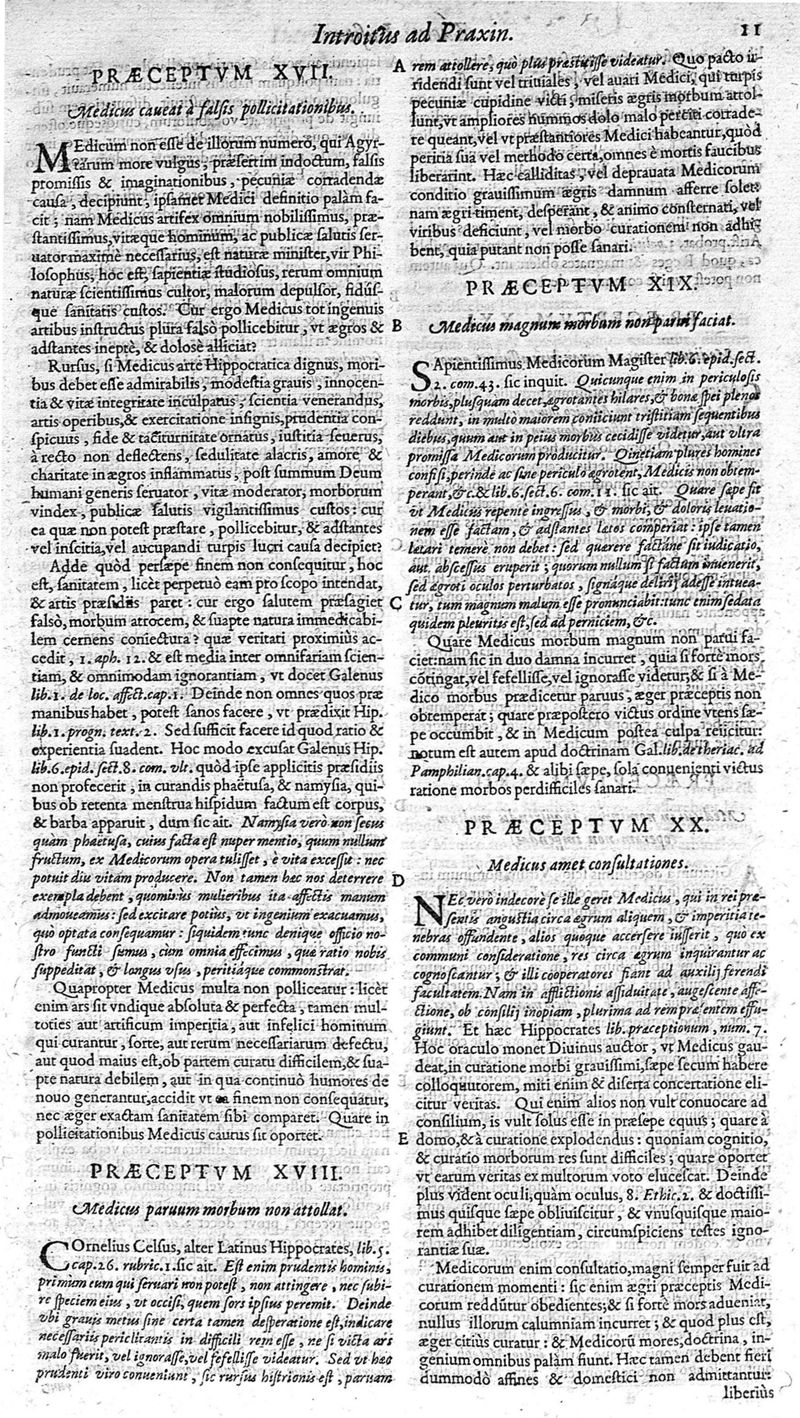 Introitus ad Praxin. 11
PRÆCEPTVM XVII.
Medicus caueat à falsis pollicitationibus.
MEdicum non esse de illorum numero, qui Agyr-
tarum more vulgus, præsertim indoctum, falsis
promissis & imaginationibus, pecuniæ corradendæ
causa, decipiunt, ipsamet Medici definitio palàm fa-
cit; nam Medicus artifex omnium nobilissimus, præ-
stantissimus, vitæque hominum, ac publicæ salutis ser-
uator maximè necessarius, est naturæ minister, vir Phi-
losophus, hoc est, sapientiæ studiosus, rerum omnium
naturæ scientissimus cultor, malorum depulsor, fidús-
que sanitatis custos. Cur ergo Medicus tot ingenuis
artibus instructus plura falsò pollicebitur, vt ægros &
adstantes ineptè, & dolosè alliciat?
Rursus, si Medicus arte Hippocratica dignus, mori-
bus debet esse admirabilis, modestia grauis, innocen-
tia & vitæ integritate inculpatus, scientia venerandus,
artis operibus, & exercitatione insignis, prudentia con-
spicuus, fide & taciturnitate ornatus, iustitia seuerus,
à recto non deflectens, sedulitate alacris, amore &
charitate in ægros inflammatus, post summum Deum
humani generis seruator, vitæ moderator, morborum
vindex, publicæ salutis vigilantissimus custos: cur
ea quæ non potest præstare, pollicebitur, & adstantes
vel inscitia, vel aucupandi turpis lucri causa decipiet?
Adde quòd persæpe finem non consequitur, hoc
est, sanitatem, licèt perpetuò eam pro scopo intendat,
& artis præsidiis paret: cur ergo salutem præsagiet
falsò, morbum atrocem, & suapte natura immedicabi-
lem cernens coniectura? quæ veritati proximiùs ac-
cedit, 1. aph. 12. & est media inter omnifariam scien-
tiam, & omnimodam ignorantiam, vt docet Galenus
lib. 1. de loc. affect. cap. 1. Deinde non omnes quos præ
manibus habet, potest sanos facere, vt prædixit Hip.
lib. 1. progn. text. 2. Sed sufficit facere id quod ratio &
experientia suadent. Hoc modo excusat Galenus Hip.
lib. 6. epid. sect. 8. com. vlt. quòd ipse applicitis præsidiis
non profecerit, in curandis phaëtusa, & namysia, qui-
bus ob retenta menstrua hispidum factum est corpus,
& barba apparuit, dum sic ait. Namysia verò non secus
quàm phaëtusa, cuius facta est nuper mentio, quum nullum
fructum, ex Medicorum opera tulisset, è vita excessit: nec
potuit diu vitam producere. Non tamen hæc nos deterrere
exempla debent, quominus mulieribus ita affectis manum
admoueamus: sed excitare potius, vt ingenium exacuamus,
quò optata consequamur: siquidem tunc denique officio no-
stro functi sumus, cùm omnia effecimus, quæ ratio nobis
suppeditat, & longus vsus, peritiáque commonstrat.
Quapropter Medicus multa non polliceatur: licèt
enim ars sit vndique absoluta & perfecta, tamen mul-
toties aut artificum imperitia, aut infelici hominum
qui curantur, sorte, aut rerum necessariarum defectu,
aut quod maius est, ob partem curatu difficilem, & sua-
pte natura debilem, aut in qua continuò humores de
nouo generantur, accidit vt finem non consequatur,
nec æger exactam sanitatem sibi comparet. Quare in
pollicitationibus Medicus cautus sit oportet.
PRÆCEPTVM XVIII.
Medicus paruum morbum non attollat.
COrnelius Celsus, alter Latinus Hippocrates, lib. 5.
cap. 26. rubric. 1. sic ait. Est enim prudentis hominis,
primùm eum qui seruari non potest, non attingere, nec subi-
re speciem eius, vt occisi, quem sors ipsius peremit. Deinde
vbi grauis metus sine certa tamen desperatione est, indicare
necessariis periclitantis in difficili rem esse, ne si victa ars
malo fuerit, vel ignorasse, vel fefellisse videatur. Sed vt hæc
prudenti viro conueniunt, sic rursus histrionis est, paruam
rem attollere, quò plus præstitisse videatur. Quo pacto ir-
ridendi sunt vel triuiales, vel auari Medici, qui turpis
pecuniæ cupidine victi, miseris ægris morbum attol-
lunt, vt ampliores nummos dolo malo perciti corrade-
re queant, vel vt præstantiores Medici habeantur, quòd
peritia sua vel methodo certa, omnes è mortis faucibus
liberarint. Hæc calliditas, vel deprauata Medicorum
conditio grauissimum ægris damnum afferre solet:
nam ægri timent, desperant, & animo consternati, vel
viribus deficiunt, vel morbo curationem non adhi-
bent, quia putant non posse sanari.
PRÆCEPTVM XIX.
Medicus magnum morbum non parui faciat.
SApientissimus Medicorum Magister lib. 6. epid. sect.
2. com. 43. sic inquit. Quicunque enim in periculosis
morbis, plusquam decet, ægrotantes hilares, & bonæ spei plenos
reddunt, in multo maiorem coniiciunt tristitiam sequentibus
diebus, quum aut in peius morbus cecidisse videtur, aut vltra
promissa Medicorum producitur. Quinetiam plures homines
confisi, perinde ac sine periculo ægrotent, Medicis non obtem-
perant, &c. & lib. 6. sect. 6. com. 11. sic ait. Quare sæpe fit
vt Medicus repente ingressus, & morbi, & doloris leuatio-
nem esse factam, & adstantes lætos comperiat: ipse tamen
lætari temere non debet: sed quærere factâne sit iudicatio,
aut abscessus eruperit; quorum nullum si factum inuenerit,
sed ægroti oculos perturbatos, signáque delirij adesse intuea-
tur, tum magnum malum esse pronunciabit: tunc enim sedata
quidem pleuritis est, sed ad perniciem, &c.
Quare Medicus morbum magnum non parui fa-
ciet: nam sic in duo damna incurret, quia si fortè mors
cõtingat, vel fefellisse, vel ignorasse videtur; & si à Me-
dico morbus prædicetur paruus, æger præceptis non
obtemperat; quare præpostero victus ordine vtens sæ-
pe occumbit, & in Medicum postea culpa reiicitur:
notum est autem apud doctrinam Gal. lib. de theriac. ad
Pamphilian. cap. 4. & alibi sæpe, sola conuenienti victus
ratione morbos perdifficiles sanari.
PRÆCEPTVM XX.
Medicus amet consultationes.
NEc verò indecorè se ille geret Medicus, qui in rei præ-
sentis angustia circa ægrum aliquem, & imperitia te-
nebras offundente, alios quoque accersere iusserit, quo ex
communi consideratione, res circa ægrum inquirantur ac
cognoscantur; & illi cooperatores fiant ad auxilij ferendi
facultatem. Nam in afflictionis assiduitate, augescente affe-
ctione, ob consilij inopiam, plurima ad rem præsentem effu-
giunt. Et hæc Hippocrates lib. præceptionum, num. 7.
Hoc oraculo monet Diuinus auctor, vt Medicus gau-
deat, in curatione morbi grauissimi, sæpe secum habere
colloquutorem, miti enim & diserta concertatione eli-
citur veritas. Qui enim alios non vult conuocare ad
consilium, is vult solus esse in præsepe equus; quare à
domo, & à curatione explodendus: quoniam cognitio,
& curatio morborum res sunt difficiles; quare oportet
vt earum veritas ex multorum voto elucescat. Deinde
plus vident oculi, quàm oculus, 8. Ethic. 2. & doctissi-
mus quisque sæpe obliuiscitur, & vnusquisque maio-
rem adhibet diligentiam, circumspiciens testes igno-
rantiæ suæ.
Medicorum enim consultatio, magni semper fuit ad
curationem momenti: sic enim ægri præceptis Medi-
corum reddũtur obedientes; & si fortè mors adueniat,
nullus illorum calumniam incurret; & quod plus est,
æger citiùs curatur: & Medicorũ mores, doctrina, in-
genium omnibus palàm fiunt. Hæc tamen debent fieri
dummodò affines & domestici non admittantur:
liberiùs
A
B
C
D
E